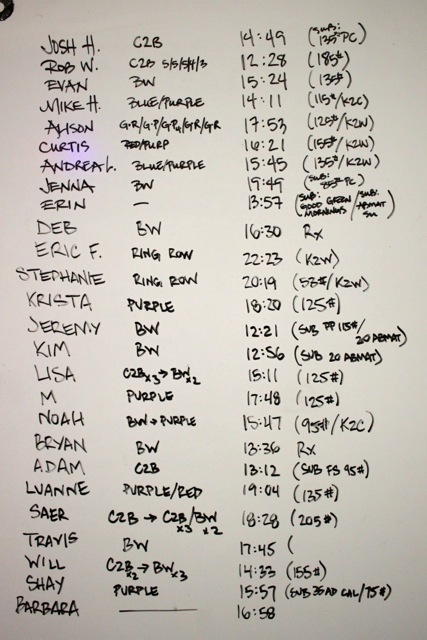 JOSH H. C2B 14:49 (SUB: 135# PC)
ROB W. C2B 5/5/5/4/3 12:28 (185#)
EVAN BW 15:24 (135#)
MIKE H. BLUE/PURPLE 14:11 (115#/K2C)
ALISON 17:53 (125#/K2W)
CURTIS RED/PURP 16:21 (155#/K2W)
ANDREA L. BLUE/PURPLE 15:45 (135#/K2W)
JENNA BW 19:49 (SUB: 85# PC)
ERIN — 13:57 (SUB: GOOD MORNINGS GREEN/SUB: ABMAT SU)
DEB BW 16:30 Rx
ERIC F. RING ROW 22:23 (K2W)
STEPHANIE RING ROW 20:19 (53#/K2W)
KRISTA PURPLE 18:20 (125#)
JEREMY BW 12:21 (SUB PP 115#/20 ABMAT)
KIM BW 12:56 (SUB 20 ABMAT)
LISA C2B x3 → BW x2 15:11 (125#)
M PURPLE 17:48 (125#)
NOAH BW → PURPLE 15:47 (95#/K2C)
BRYAN BW 13:36 Rx
ADAM C2B 13:12 (SUB FS 95#)
LUANNE PURPLE/RED 19:04 (135#)
SAER C2B → C2B/BW x3 x2 18:28 (205#)
TRAVIS BW 17:45 (
WILL C2B x2 → BW x3 14:33 (155#)
SHAY PURPLE 15:57 (SUB 35 AD CAL/75#)
BARBARA — 16:58